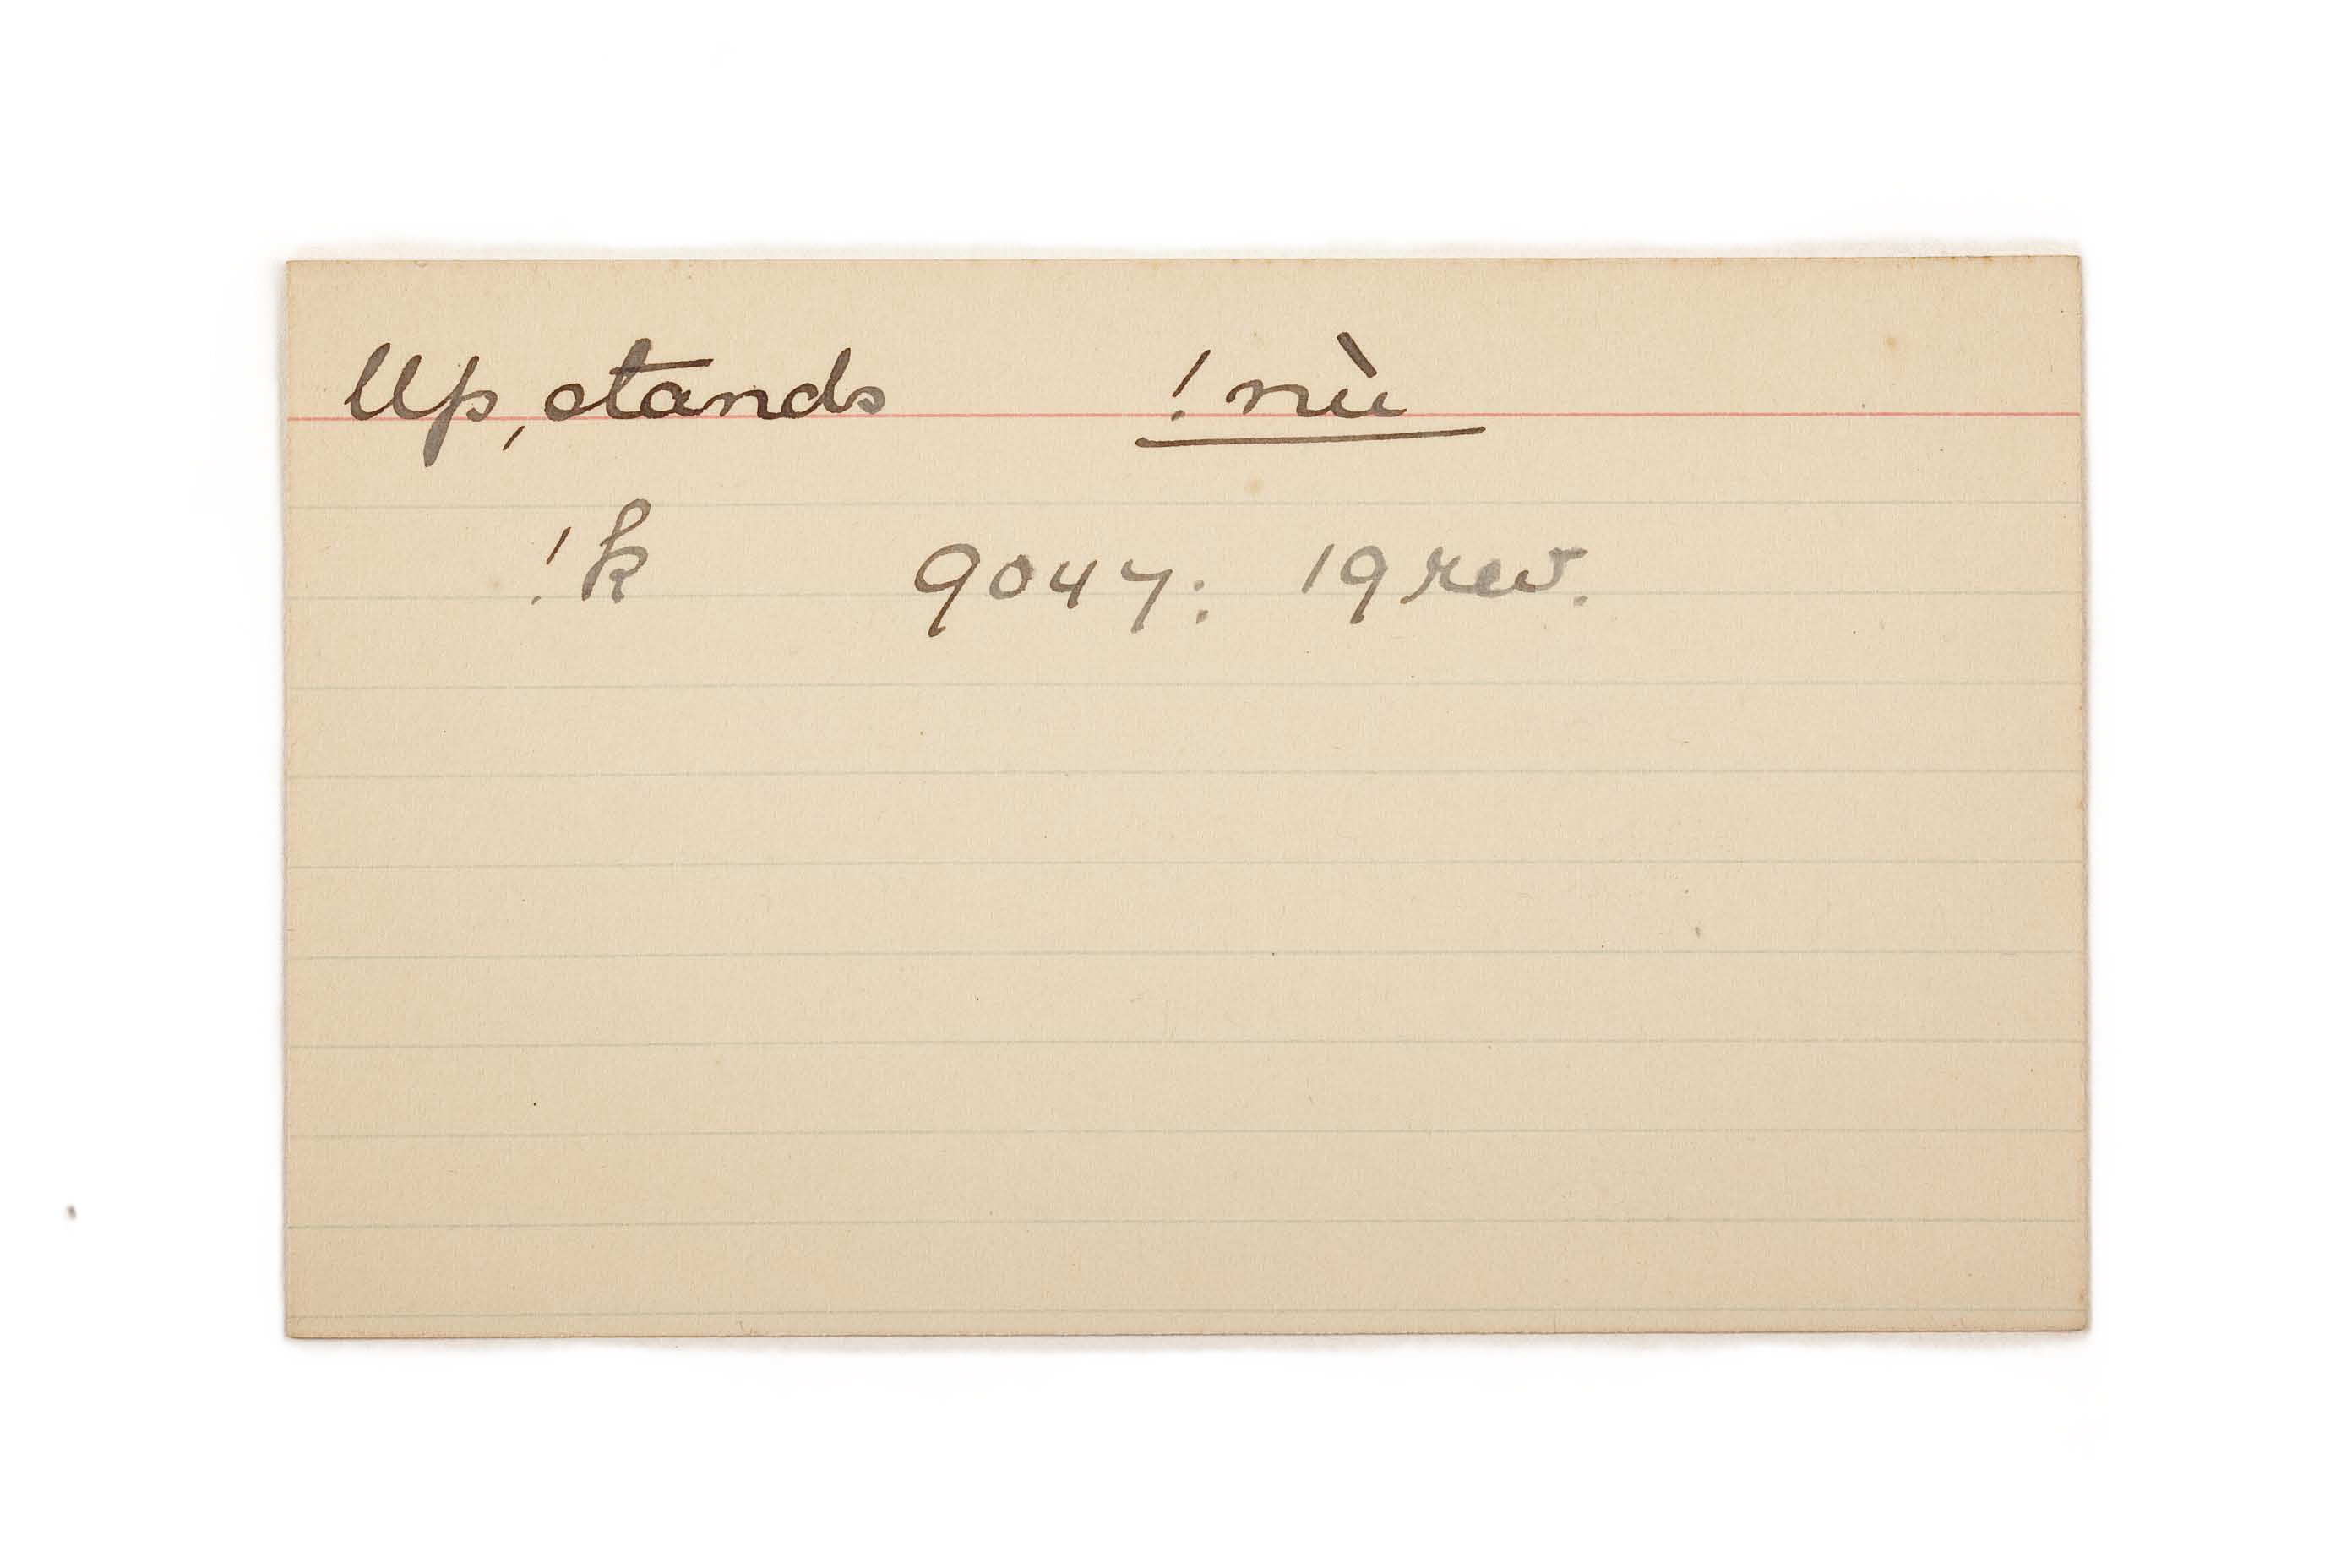 Up, stands !nùu
!k 9047: 19 rev.